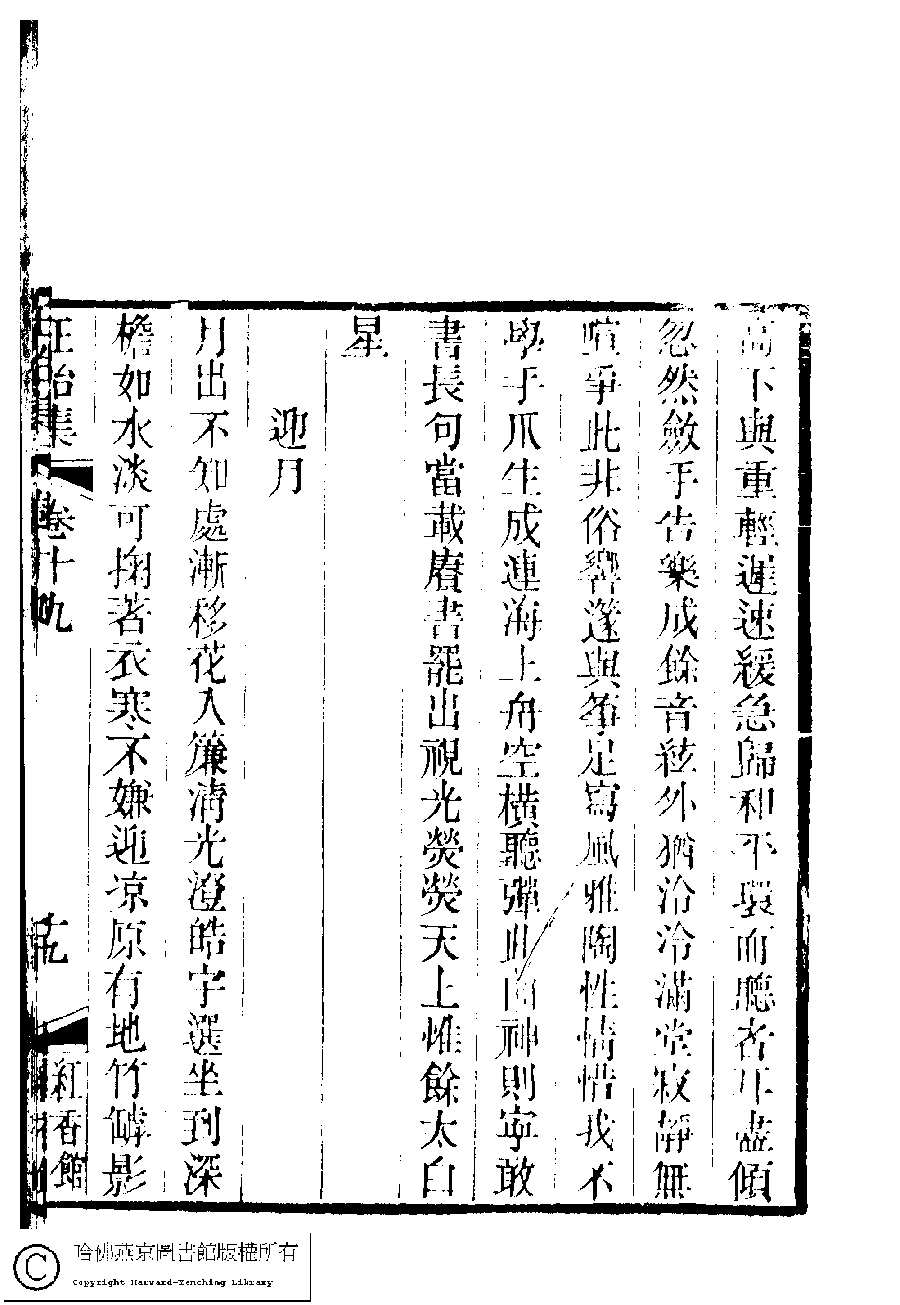 高下與重輕遲速緩急歸和平環而聽者耳盡傾
忽然斂手告樂成餘音絃外猶泠泠滿堂寂靜無
喧爭此非俗響邃與箏足寫風雅陶性情惜我不
學于爪生成連海上舟空橫聽彈此曲神則寧敢
書長句當載賡書罷出視光熒熒天上惟餘太白
星
迎月
月出不知處漸移花入簾清光澄皓宇選坐到深
檐如水淡可掬著衣寒不嫌迎涼原有地竹罅影
卷十九
十九
紅香館
哈佛燕京圖書館版權所有
Copyright Harvard-Yenching Library